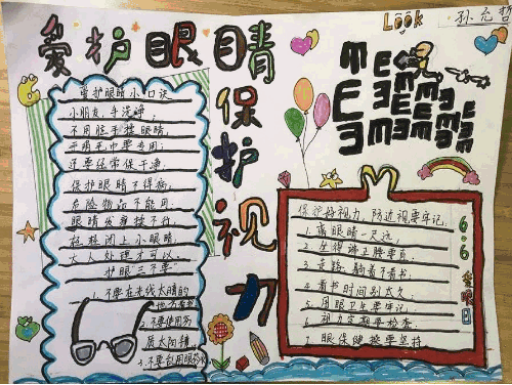 Look
孙元哲
爱护眼睛
保护视力
爱护眼睛小口诀
小朋友,手洗净,
不用脏手揉眼睛,
手绢毛巾要专用,
还要经常保干净,
保护眼睛不得病,
危险物品不能用,
眼睛发痒揉不行,
轻轻闭上小眼睛,
大人处理才可以,
护眼"三不要"
1.不要在光线太暗的
地方看书
不要使用劣
质太阳镜
3.不要乱用眼药水
保护好视力,防近视要牢记,
1.离眼睛一尺远,
2.坐得端正腰要直,
3.走路、躺着不看书,
4.看书时间别太久,
5.用眼卫生要牢记,
6.视力定期要检查,
7.眼保健操要坚持,
6.6爱眼日
E
M
E